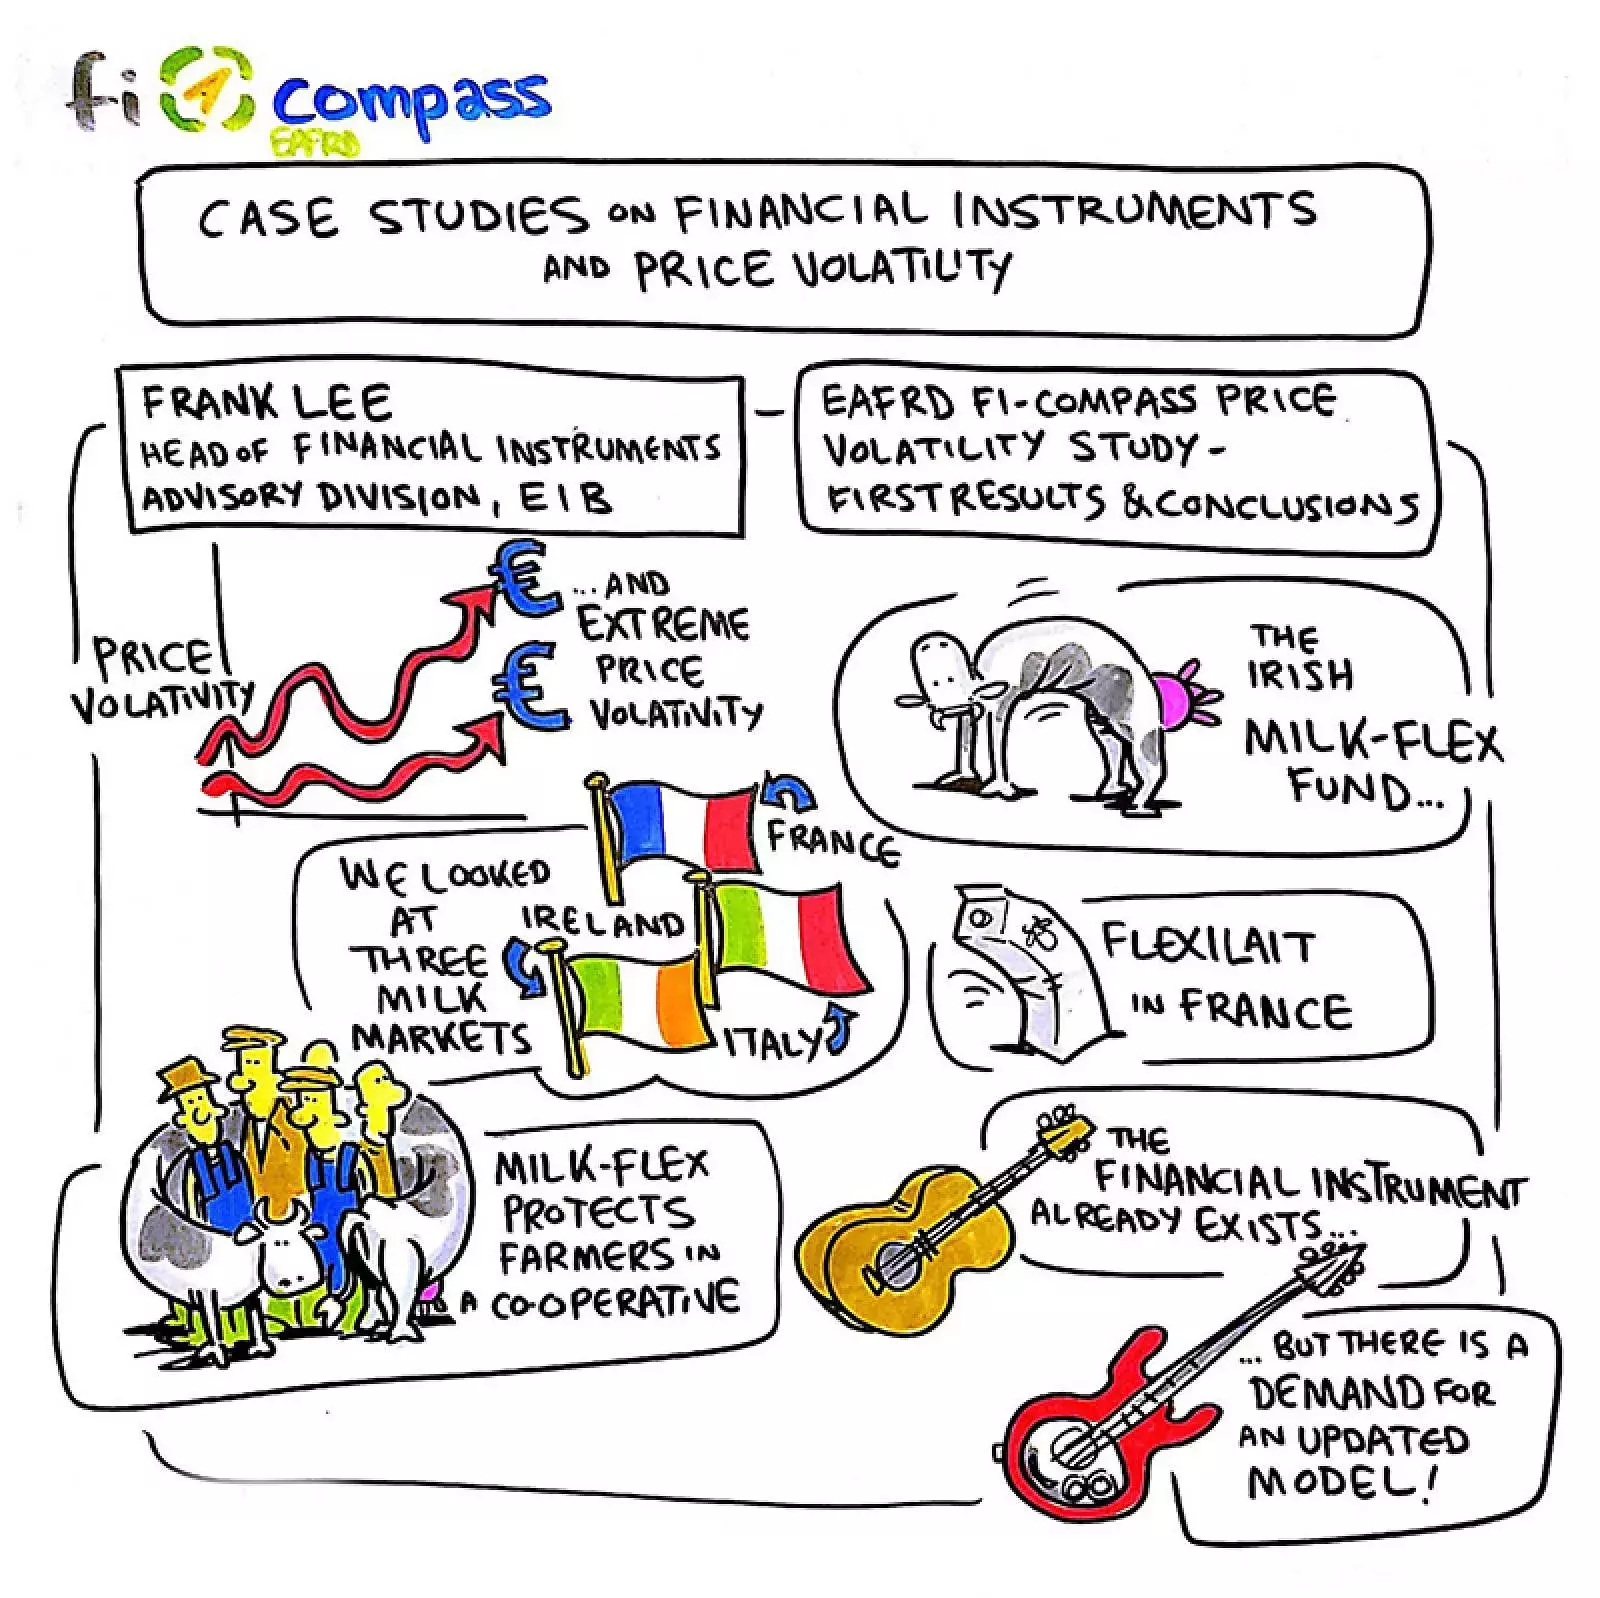 fi compass
EAFRD
CASE STUDIES ON FINANCIAL INSTRUMENTS
AND PRICE VOLATILITY
FRANK LEE
HEAD OF FINANCIAL INSTRUMENTS
ADVISORY DIVISION, EIB
EAFRD FI-COMPASS PRICE
VOLATILITY STUDY -
FIRST RESULTS & CONCLUSIONS
PRICE
VOLATIVITY
€
€
...AND
EXTREME
PRICE
VOLATIVITY
THE
IRISH
MILK-FLEX
FUND...
WE LOOKED
AT
THREE
MILK
MARKETS
FRANCE
IRELAND
ITALY
FLEXILAIT
IN FRANCE
MILK-FLEX
PROTECTS
FARMERS IN
A CO-OPERATIVE
THE
FINANCIAL INSTRUMENT
ALREADY EXISTS...
... BUT THERE IS A
DEMAND FOR
AN UPDATED
MODEL!